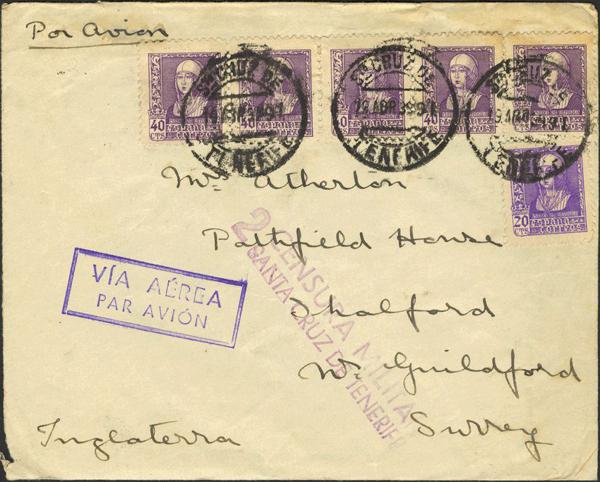 Por Avion
40 CTS
40
40 CTS
40 CTS
20 CTS
CORREOS
S.CRUZ DE
12 ABR 39
TENERIFE
Mr Atherton
Pathfield House
Shalford
Nr Guildford
Surrey
Inglaterra
VÍA AÉREA
PAR AVIÓN
2 CENSURA MILITAR
SANTA CRUZ DE TENERIFE